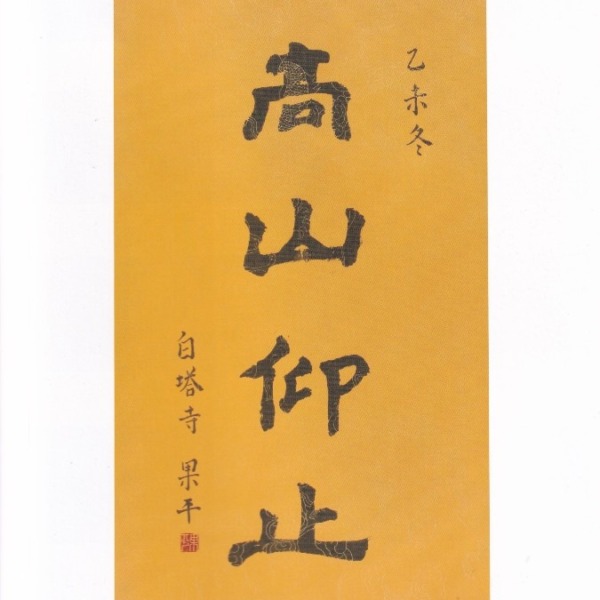 乙未冬
高山仰止
白塔寺 果平